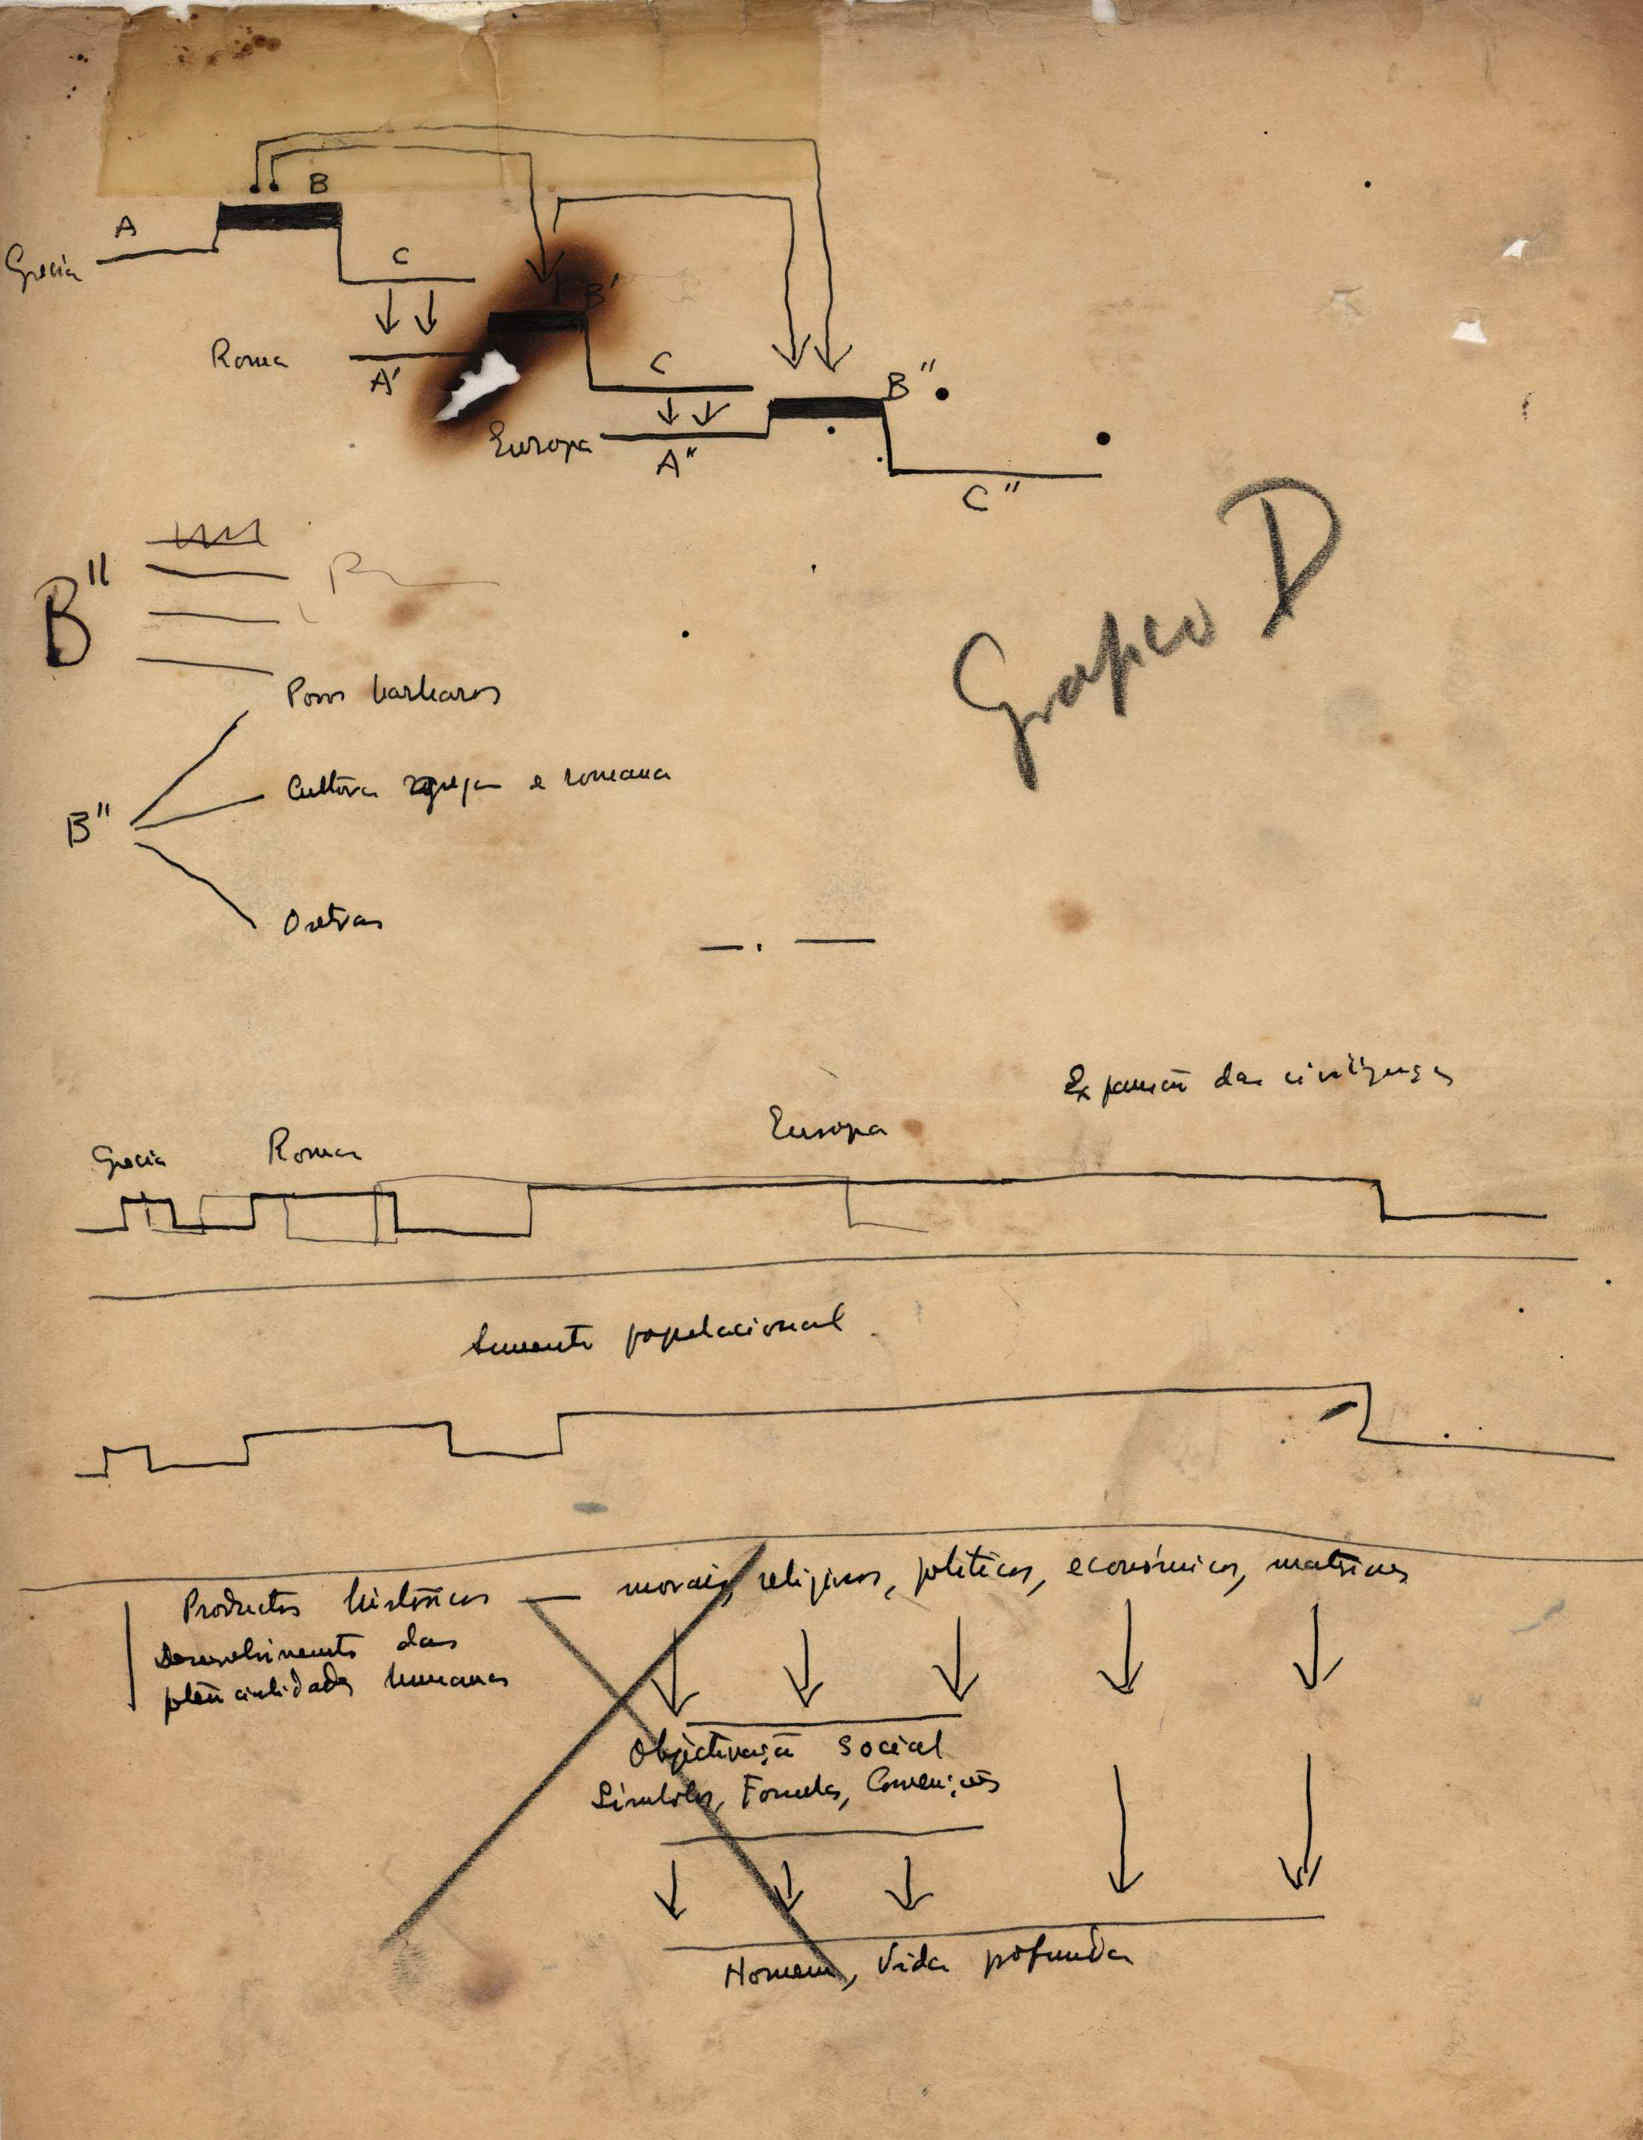 B
A
Grecia
C
B'
Roma
A'
C
B"
Europa
A"
C"
Grafico D
B"
Povos barbaros
Cultura grega e romana
B"
Outras
Expansão das civilizações
Europa
Grecia Roma
Aumento populacional
Productos históricos — morais, religiosos, politicos, económicos, matrizes
Desenvolvimento das
potencialidades humanas
Objectivação social
Símbolos, Formulas, Convenções
Homem, Vida profunda